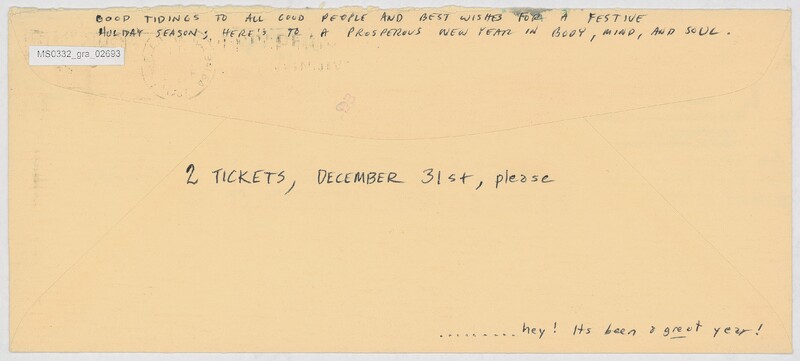 GOOD TIDINGS TO ALL GOOD PEOPLE AND BEST WISHES FOR A FESTIVE
HOLIDAY SEASON; HERE'S TO A PROSPEROUS NEW YEAR IN BODY, MIND, AND SOUL.
MS0332_gra_02693
2 TICKETS, DECEMBER 31st, please
.........hey! Its been a great year!